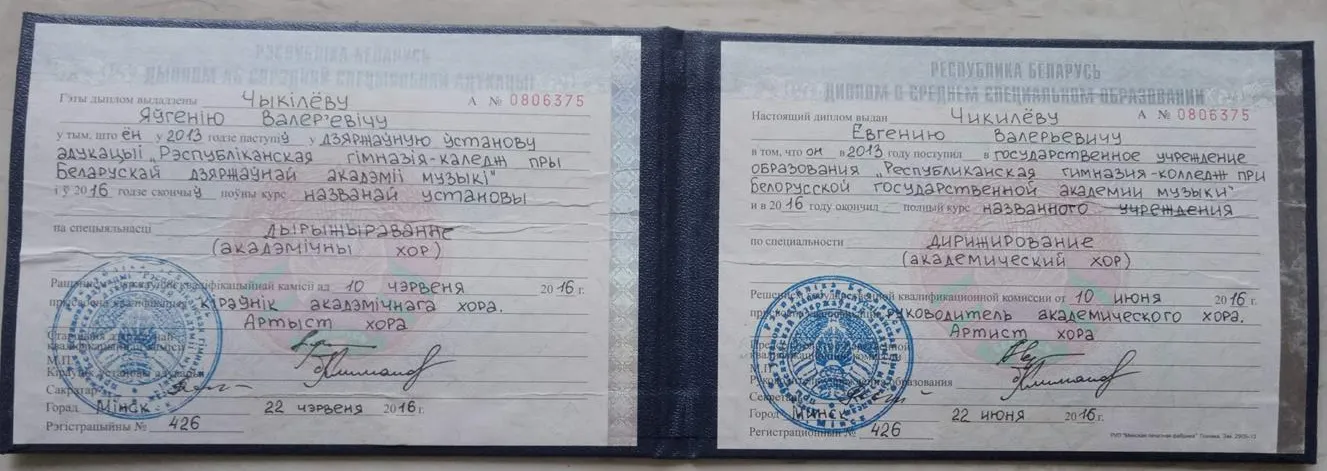 РЭСПУБЛІКА БЕЛАРУСЬ
ДЫПЛОМ АБ СЯРЭДНЯЙ СПЕЦЫЯЛЬНАЙ АДУКАЦЫІ
Гэты дыплом выдадзены Чыкілёву А № 0806375
Яўгенію Валер'евічу
у тым, што ён у 2013 годзе паступіў у дзяржаўную ўстанову
адукацыі „Рэспубліканская гімназія-каледж пры
Беларускай дзяржаўнай акадэміі музыкі"
і ў 2016 годзе скончыў поўны курс названай установы
па спецыяльнасці дырыжыраванне
(акадэмічны хор)
Рашэннем кваліфікацыйнай камісіі ад 10 чэрвеня 2016 г.
кіраўнік акадэмічнага хора.
Артыст хора
Старшыня
кваліфікацыйнай камісіі
М.П.
Кіраўнік установы адукацыі
Сакратар
Горад Мінск 22 чэрвеня 2016 г.
Рэгістрацыйны № 426
РЕСПУБЛИКА БЕЛАРУСЬ
ДИПЛОМ О СРЕДНЕМ СПЕЦИАЛЬНОМ ОБРАЗОВАНИИ
Настоящий диплом выдан Чикилёву А № 0806375
Евгению Валерьевичу
в том, что он в 2013 году поступил в государственное учреждение
образования „Республиканская гимназия-колледж при
Белорусской государственной академии музыки"
и в 2016 году окончил полный курс названного учреждения
по специальности дирижирование
(академический хор)
Решением государственной квалификационной комиссии от 10 июня 2016 г.
руководитель академического хора.
Артист хора
квалификационной комиссии
М.П.
образования
Секретарь
Город Минск 22 июня 2016 г.
Регистрационный № 426